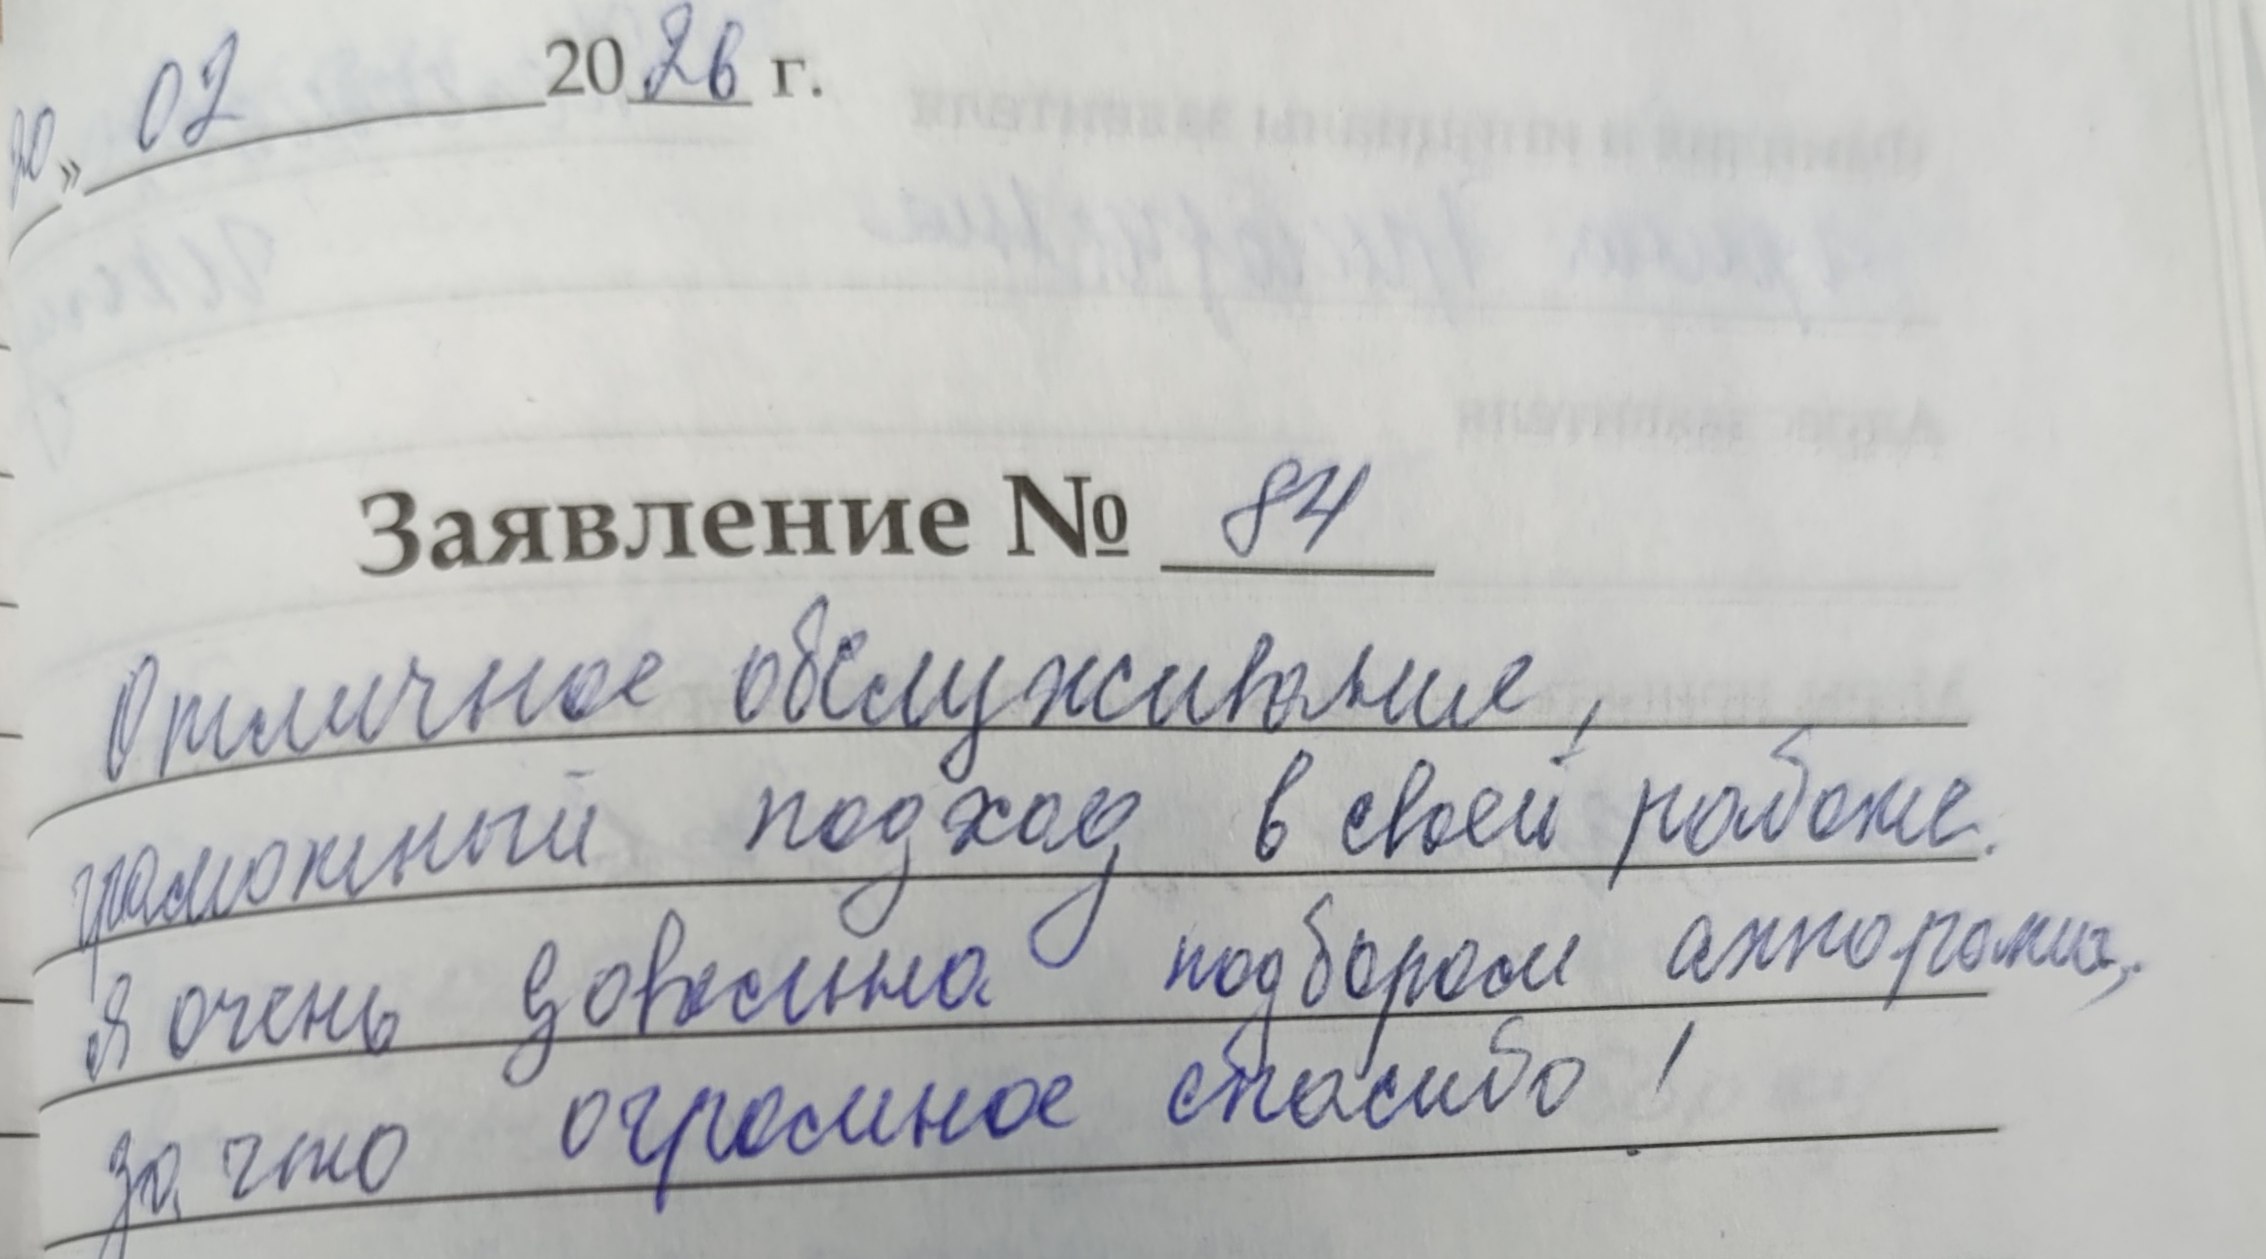 20» 02 2026 г.
Заявление № 84
Отличное обслуживание,
грамотный подход в своей работе.
Я очень довольна подбором аппарата,
за что огромное спасибо!